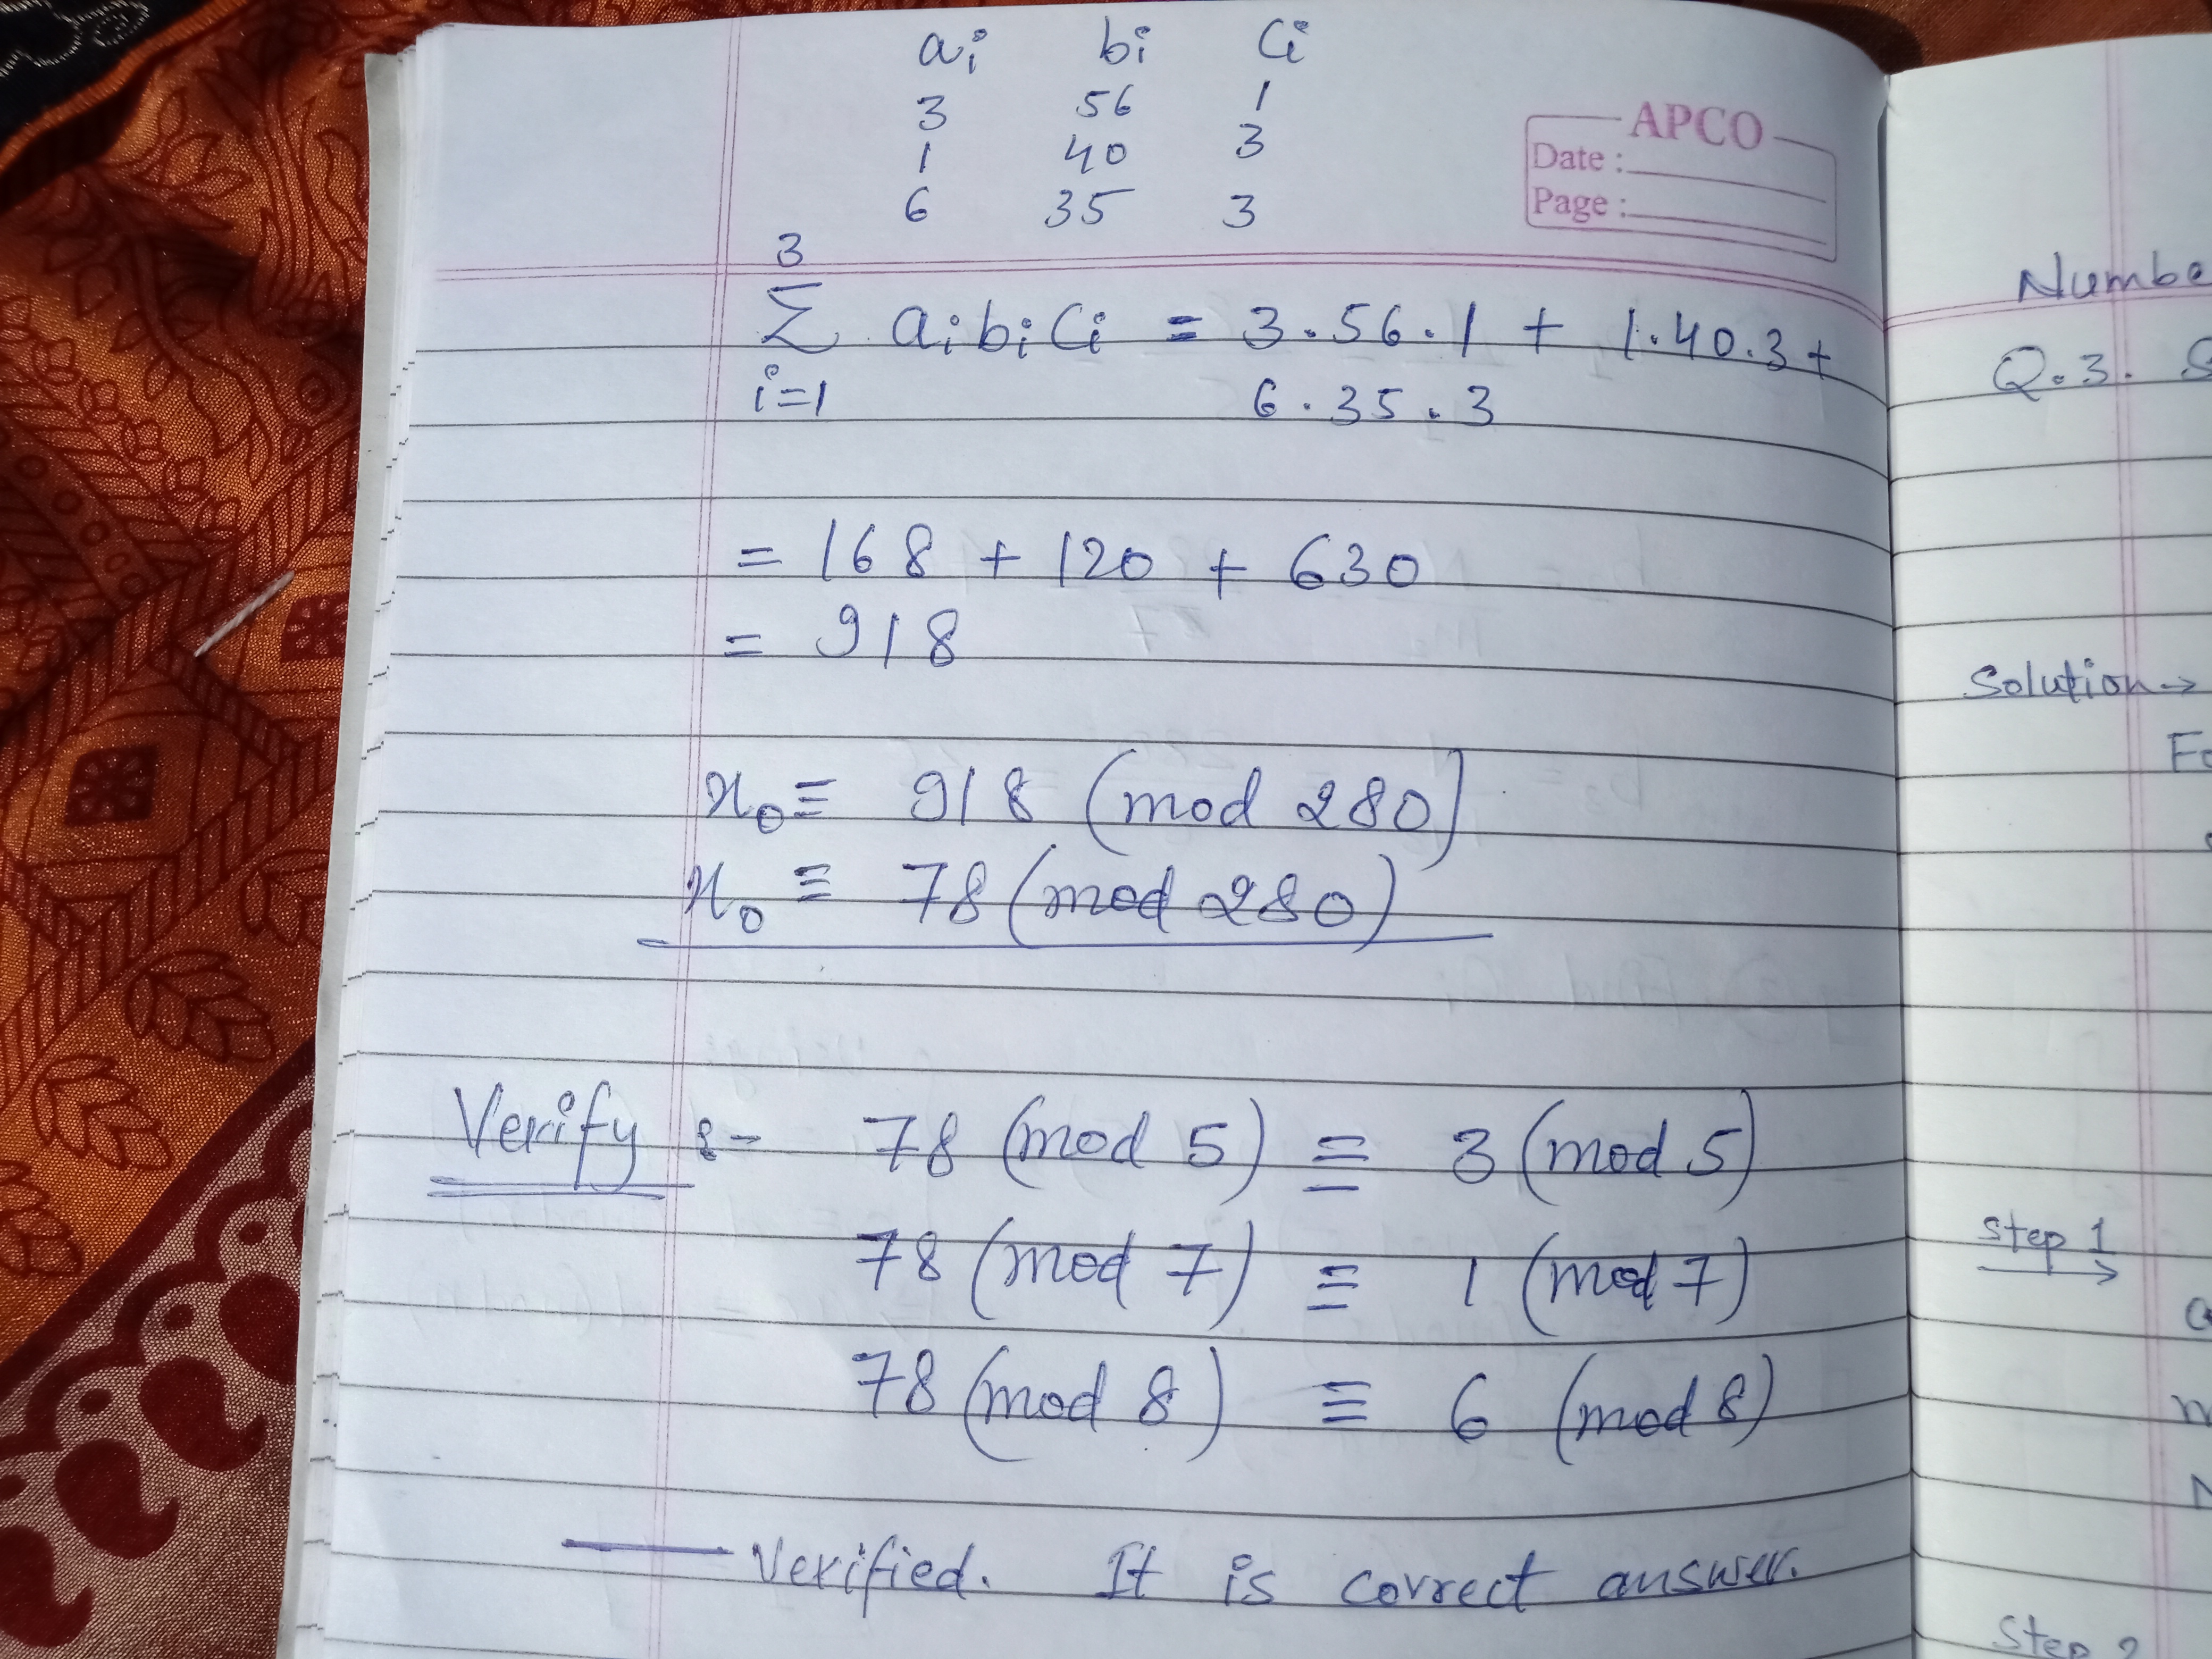 ai bi ci
3 56 1
1 40 3
6 35 3
APCO
Date :
Page :
3
Σ aibici = 3.56.1 + 1.40.3 +
i=1 6.35.3
= 168 + 120 + 630
= 918
x0 ≡ 918 (mod 280)
x0 ≡ 78 (mod 280)
Verify :- 78 (mod 5) ≡ 3 (mod 5)
78 (mod 7) ≡ 1 (mod 7)
78 (mod 8) ≡ 6 (mod 8)
Verified. It is correct answer.
Numbe
Q.3. S
Solution→
Step 1
Step 2